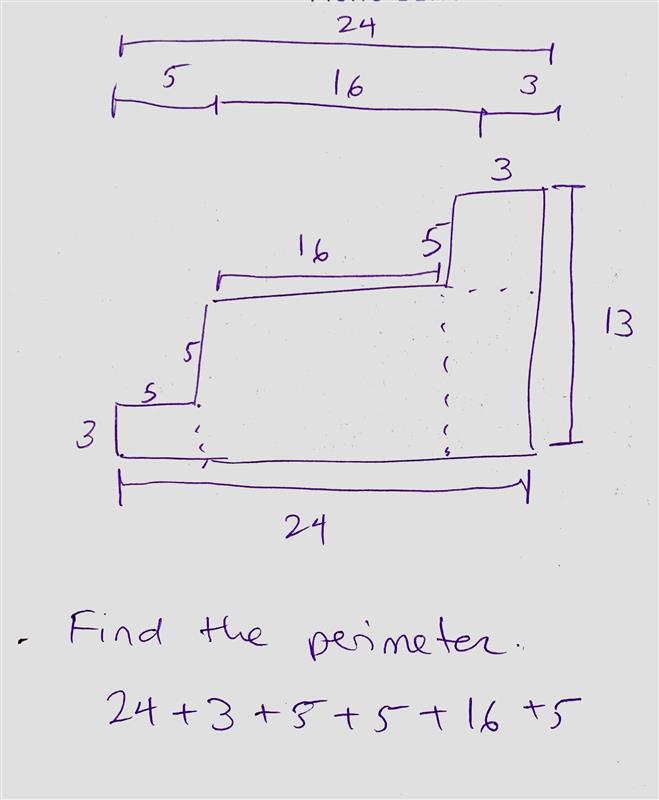 24
5 16 3
3
16 5
13
5
5
3
24
Find the perimeter.
24 + 3 + 5 + 5 + 16 + 5